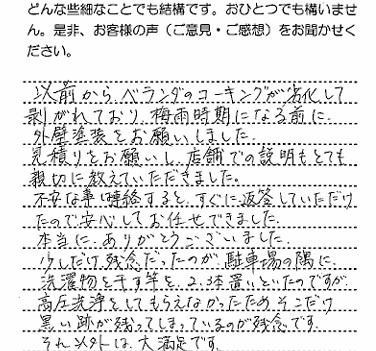 どんな些細なことでも結構です。おひとつでも構いませ
ん。是非、お客様の声（ご意見・ご感想）をお聞かせく
ださい。
以前から、ベランダのコーキングが、劣化して
剥がれており、梅雨時期になる前に、
外壁塗装をお願いしました。
見積りをお願いし、店舗での説明もとても
親切に教えていただきました。
不安な事は連絡すると、すぐに返答していただけ
たので安心してお任せできました。
本当に、ありがとうございました。
少しだけ残念だったのが、駐車場の隅に、
洗濯物を干す竿を、2、3本置いといたのですが、
高圧洗浄をしてもらえなかったため、そこだけ
黒い跡が残ってしまっているのが残念です。
それ以外は、大満足です。